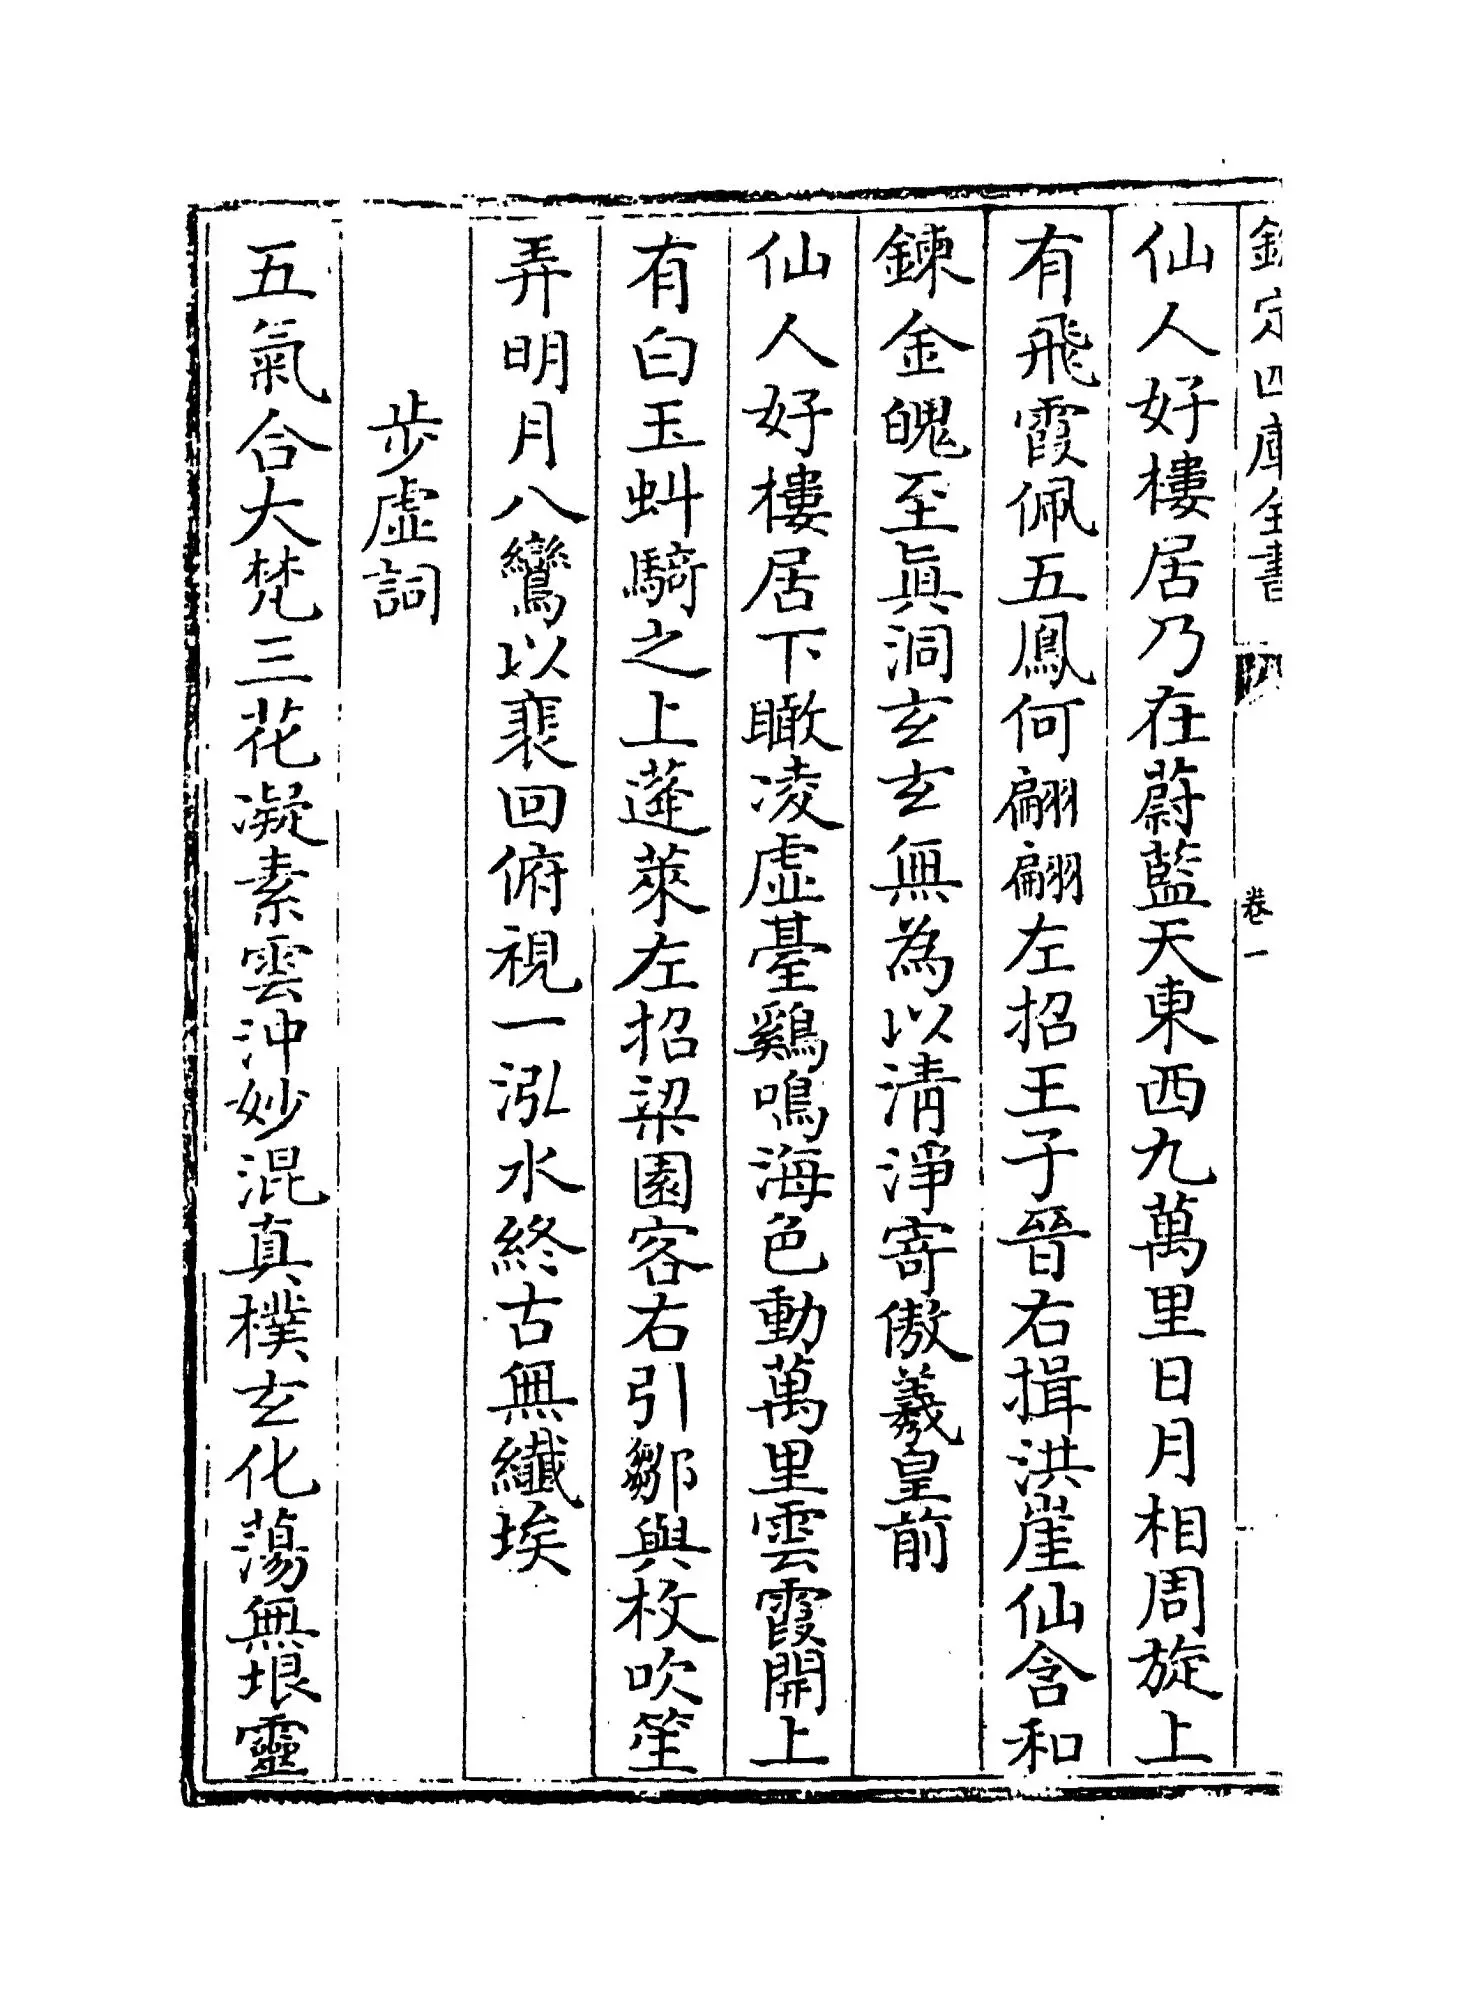 欽定四庫全書
卷一
仙人好樓居乃在蔚藍天東西九萬里日月相周旋上
有飛霞佩五鳳何翩翩左招王子晉右揖洪崖仙含和
鍊金魄至眞洞玄玄無為以清淨寄傲羲皇前
仙人好樓居下瞰凌虛臺鷄鳴海色動萬里雲霞開上
有白玉虯騎之上蓬萊左招梁園客右引鄒與枚吹笙
弄明月八鸞以裴回俯視一泓水終古無纖埃
步虛詞
五氣合大梵三花凝素雲沖妙混真樸玄化蕩無垠靈